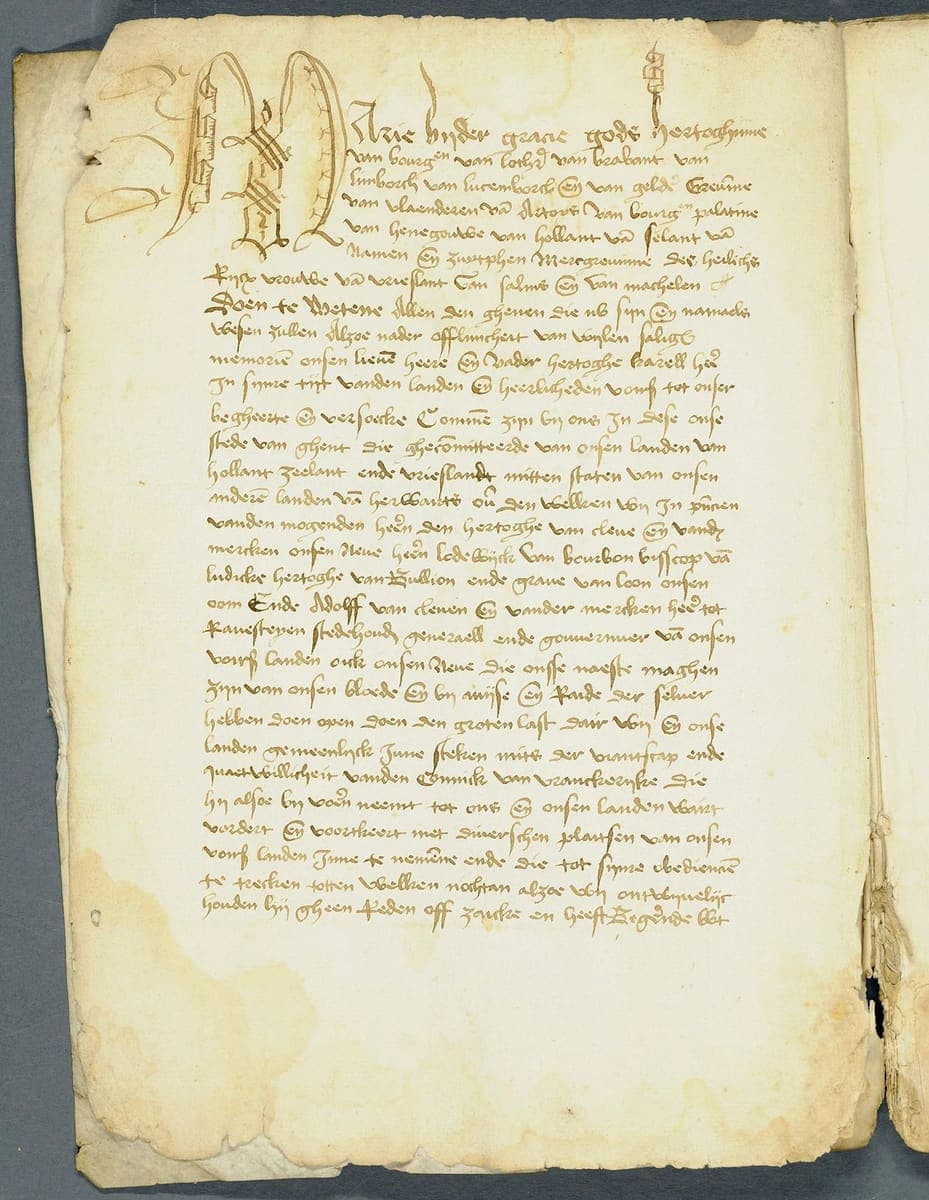 Marie byder gracie gods hertoghinne
van bourgen van lothr̃ van brabant van
limborch van lucemborch eñ van geldr̃ Greuīne
van vlaenderen vā Artoys van bourgen palatine
van henegouwe van hollant vā zelant vā
Namen eñ zuytphen Mercgreuinne des heilichs
Rijcx vrouwe vā vrieslant van salins eñ van machelen
Doen te Wetene Allen den ghenen die nv sijn eñ namaels
wesen zullen Alzoe nader afflivicheit van wylen saligħ
memoriē onsen lieuē heere eñ vader hertoghe karell hee᷒
In synre tijt vanden landen eñ heerlicheden vours tot onser
begheerte eñ versoecke Commē zijn by ons In dese onse
stede van ghent die ghecōmitteerde van onsen landen van
hollant zeelant ende vrieslandt mitten staten van onsen
anderē landen vā herwairts ou᷒ den welken wy In pn̄cien
vanden mogenden hee᷒n den hertoghe van cleue eñ vand᷒
mercken onsen Neue hee᷒n lodewijck van bourbon bisscop vā
ludicke hertoghe van Bullion ende graue van loon onsen
oom Ende Adolff van cleuen eñ vander mercken hee᷒ tot
Rauesteyen stedehoud᷒ generaell ende gouuernuer vā onsen
vours landen oick onsen Neue die onsse naeste maghen
zijn van onsen bloede eñ by auijse eñ Raide der seluer
hebben doen open doen den groten last dair wy eñ onse
landen gemeenlijck Inne steken mits der viantscap ende
quaetwillicheit vanden Coninck van vranckerijke die
hij alsoe by voe᷒n neemt tot ons eñ onsen landen wairt
vordert eñ voortkeert met diuerschen plaetsen van onsen
vours landen Inne te nemēne ende die tot synre obedienciē
te trecken totten welken nochtan alzoe wy ontwyuelijc
houden hij gheen Reden off zaicke en heeft Begerende wt